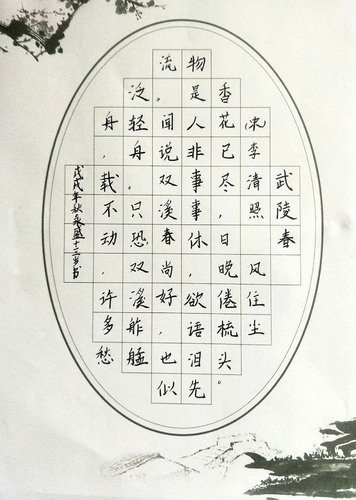 武陵春
宋李清照 风住尘
香花已尽，日晚倦梳头。
物是人非事事休，欲语泪先
流。闻说双溪春尚好，也似
泛轻舟。只恐双溪舴艋
舟，载不动，许多愁
戊戌年秋盛十三岁书